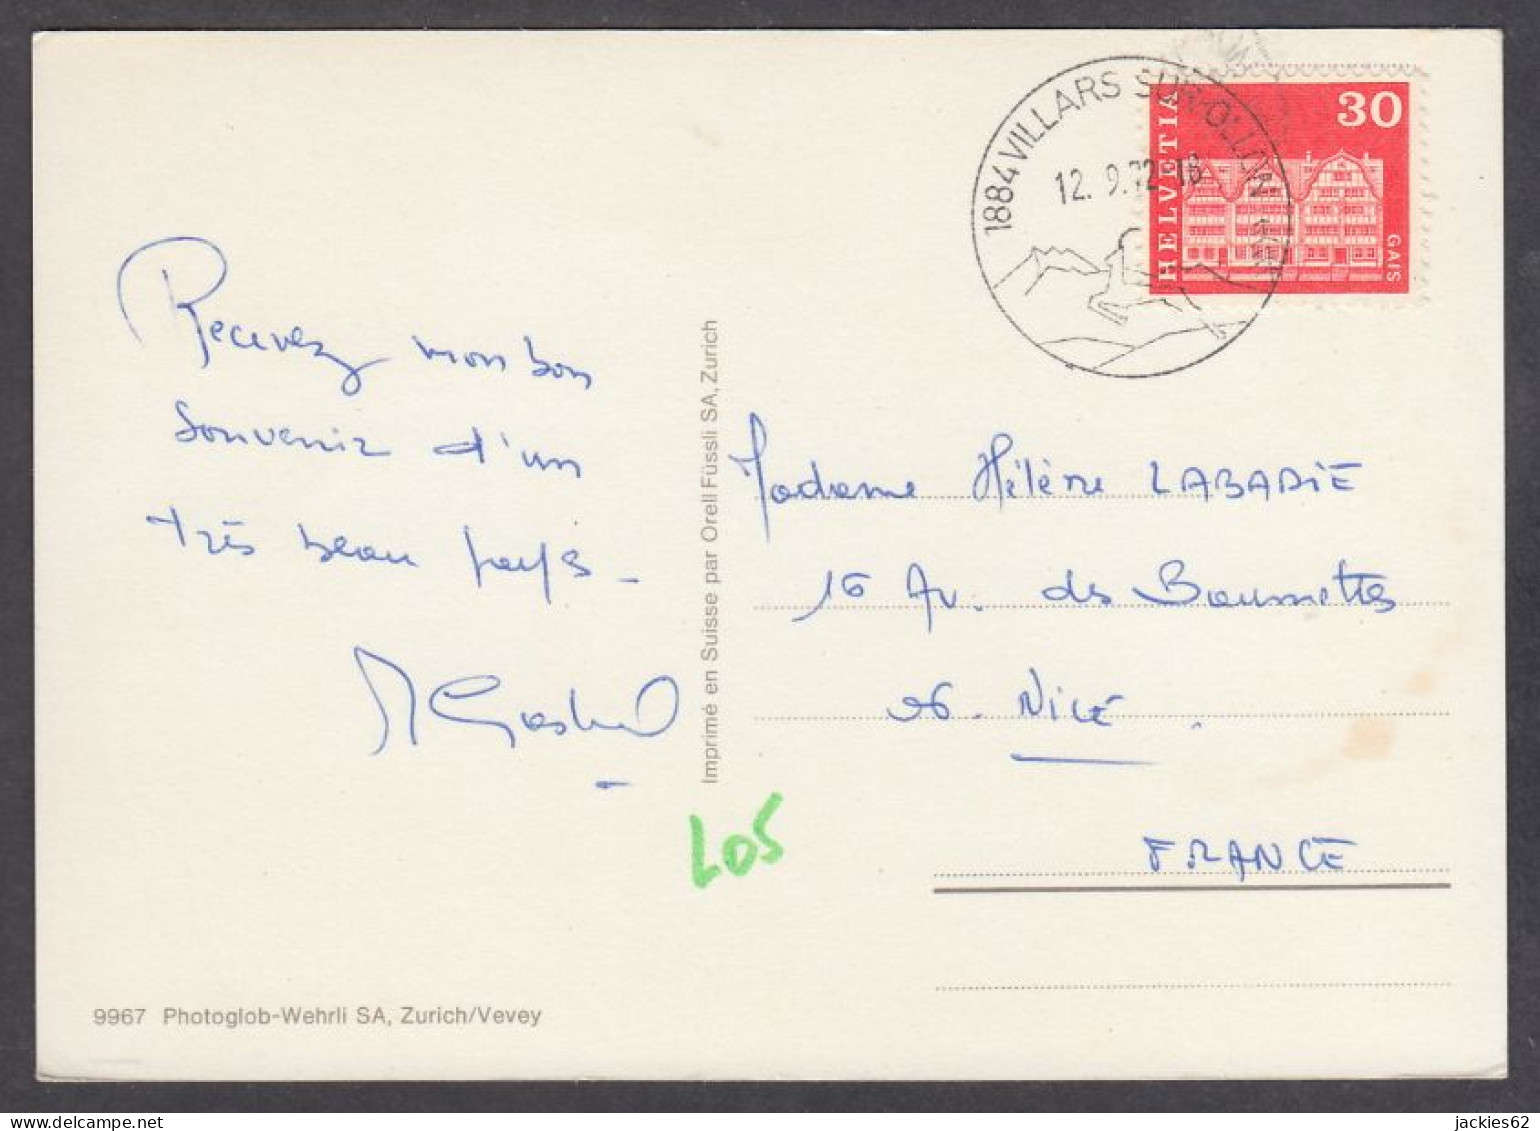 1884 VILLARS SUR-OLLON
12. 9.72-18
HELVETIA
30
GAIS
Recevez mon bon
souvenir d'un
très beau pays_
Imprimé en Suisse par Orell Füssli SA, Zurich
Madame Hélène LABADIE
16 Av. des Baumettes
06. NICE.
FRANCE
LOS
9967 Photoglob-Wehrli SA, Zurich/Vevey
jackies62